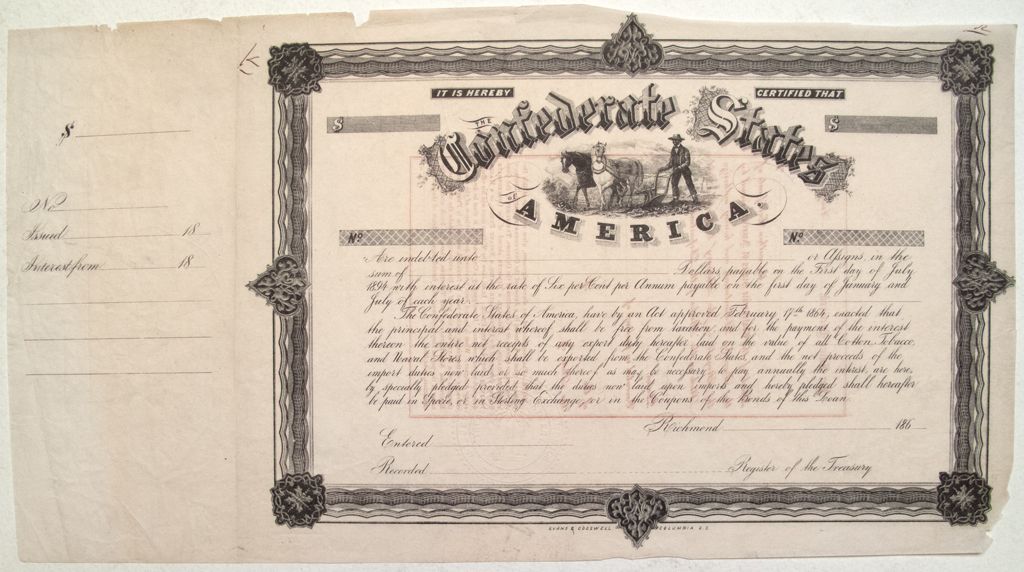 $
No
Issued 18
Interest from 18
IT IS HEREBY CERTIFIED THAT
$ $
THE Confederate States
OF AMERICA.
No No
Are indebted unto or Assigns, in the
sum of Dollars, payable on the First day of July
1894 with interest at the rate of Six per Cent per Annum payable on the first day of January and
July of each year.
The Confederate States of America, have by an Act approved February 17th 1864, enacted that
the principal and interest whereof shall be free from taxation, and for the payment of the interest
thereon the entire net receipts of any export duty hereafter laid on the value of all Cotton, Tobacco,
and Naval Stores, which shall be exported from the Confederate States, and the net proceeds of the
import duties now laid, or so much thereof as may be necessary to pay annually the interest, are here,
by specially pledged provided, that the duties now laid upon imports and hereby pledged shall hereafter
be paid in Specie, or in Sterling Exchange, or in the Coupons of the Bonds of this Loan.
Richmond 186
Entered
Recorded Register of the Treasury
EVANS & COGSWELL COLUMBIA S.C.